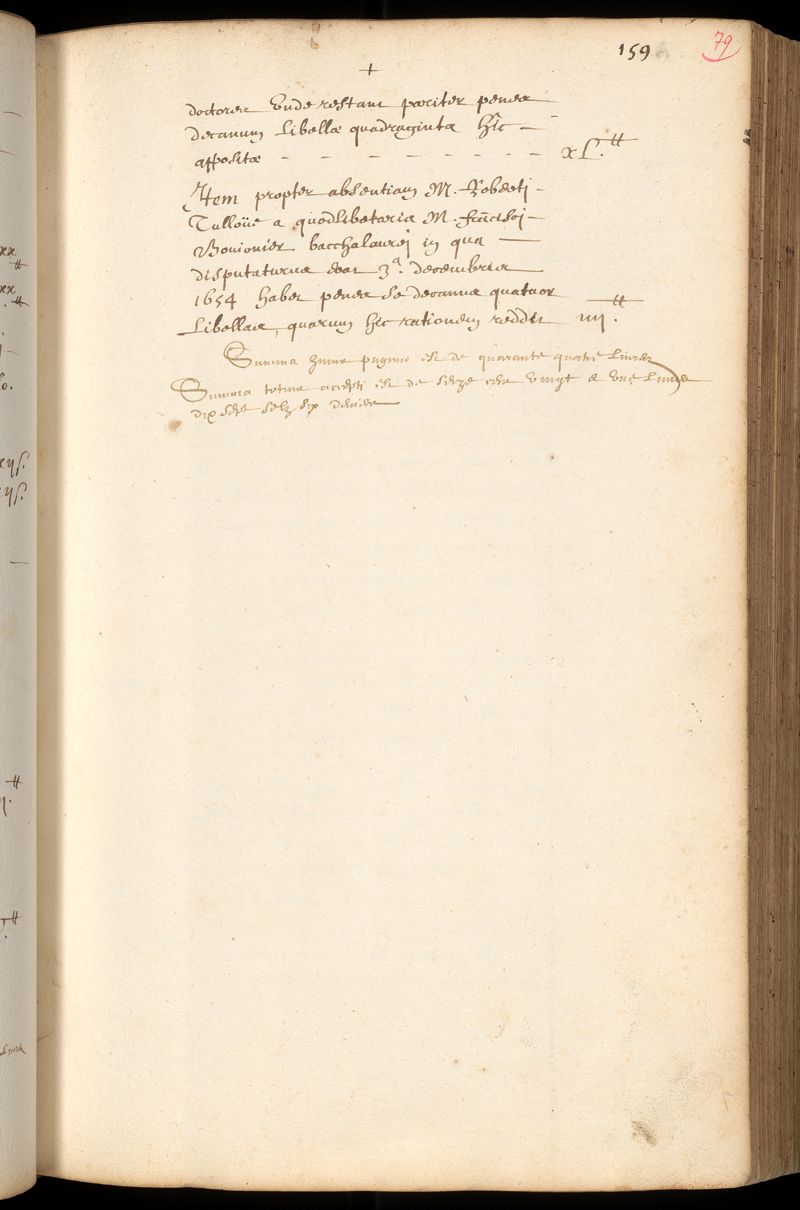 159
79
+
doctores Unde restant pariter penes
decanum Libellæ quadraginta hîc —
appositæ - - - - - - - - xl.tt
Item propter absentiam M. Roberti -
Tulloüe a quodlibetaria M. francisci -
Bouionier bacchalaurei in qua —
disputaturus erat 3a. decembris
1654 habet penes se decanus quatuor
Libellas, quarum hîc rationem reddit iiij.tt
Summa huius pagine est de quarante quatre Livres
Summa totius accepti est de seize cens vingt & une Livres
dix sept solz six deniers